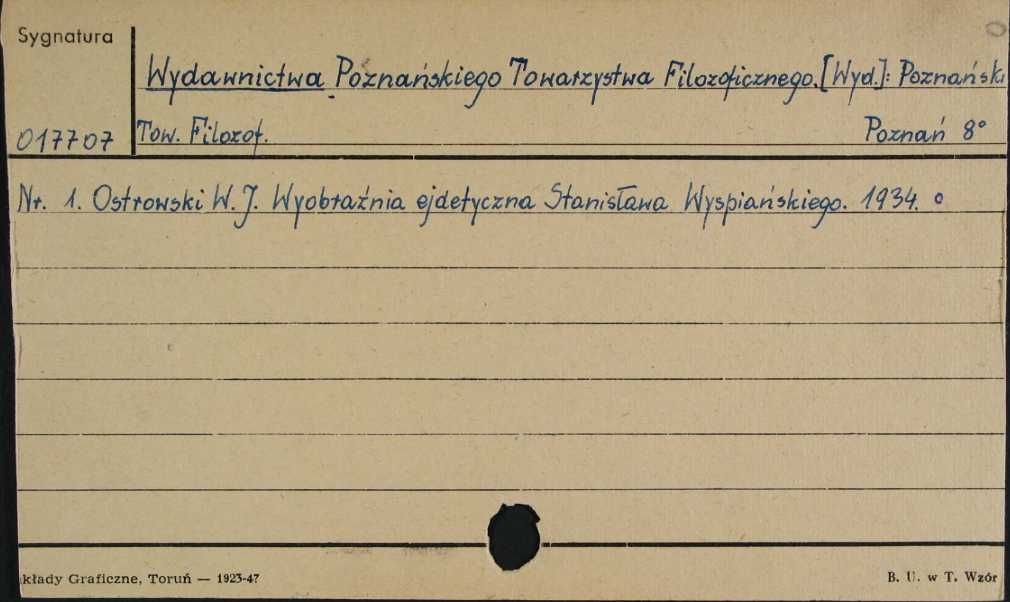 Sygnatura
Wydawnictwa Poznańskiego Towarzystwa Filozoficznego. [Wyd.]: Poznańsk
017707 Tow. Filozof. Poznań 8°
Nr. 1. Ostrowski W. J. Wyobraźnia ejdetyczna Stanisława Wyspiańskiego. 1934. o
kłady Graficzne, Toruń — 1923-47 B. U. w T. Wzór